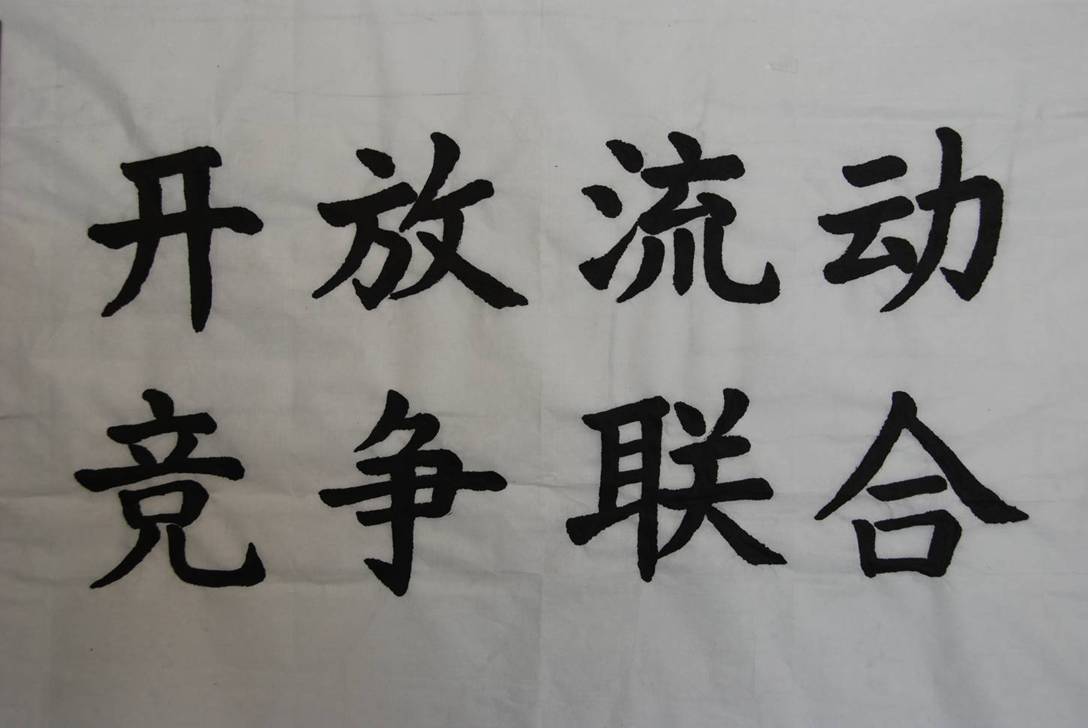 开放流动
竞争联合